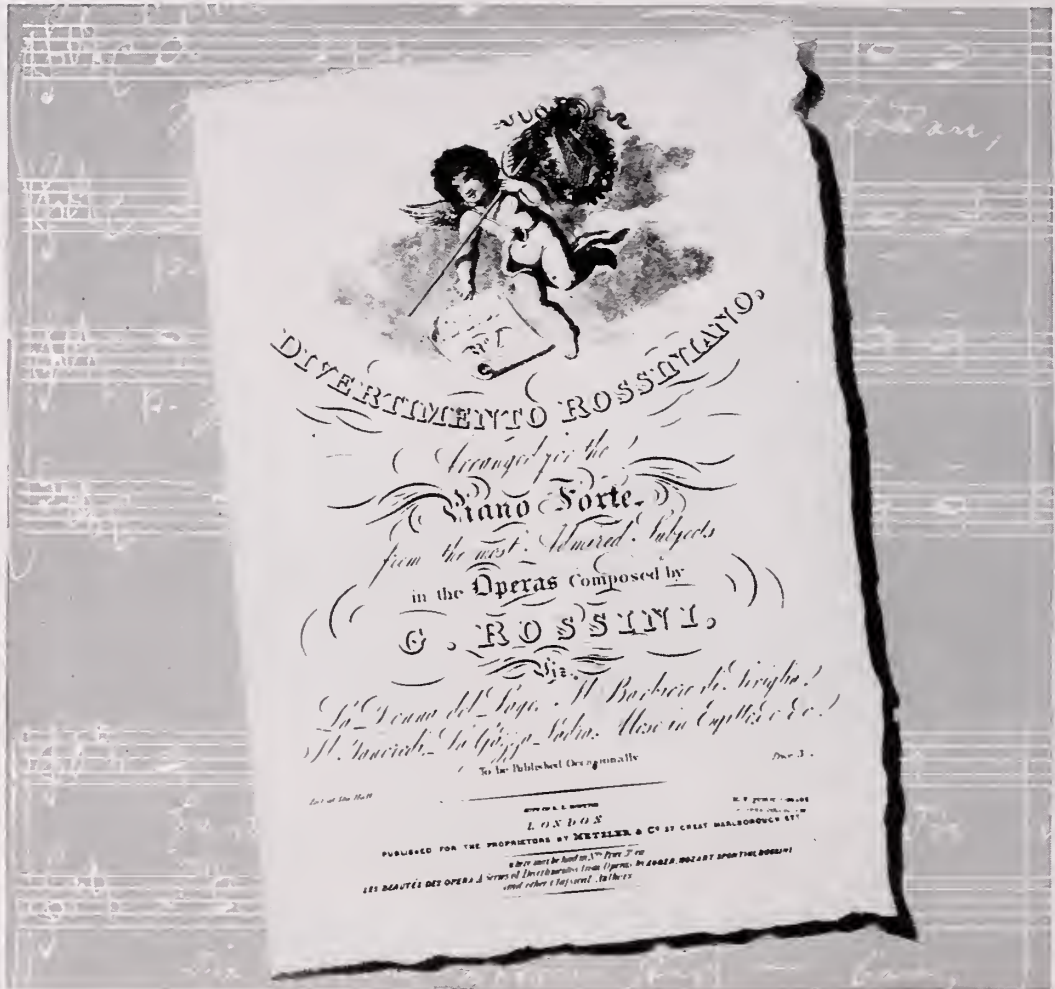 No. 1
DIVERTIMENTO ROSSINIANO,
Arranged for the
Piano Forte,
from the most Admired Subjects
in the Operas Composed by
G. ROSSINI,
Viz.
La Donna del Lago. Il Barbiere di Siviglia!
Il Tancredi. La Gazza Ladra. Mose in Egitto &c &c!
To be Published Occasionally
Ent. at Sta. Hall
Price 3
LONDON
PUBLISHED FOR THE PROPRIETORS BY METZLER & Co 37 GREAT MARLBOROUGH STt
where may be had in Nos. Price 3s. ea
LES BEAUTÉS DES OPERA A Series of Divertimentos from Operas by AUBER, MOZART SPONTINI, ROSSINI
and other Classical Authors